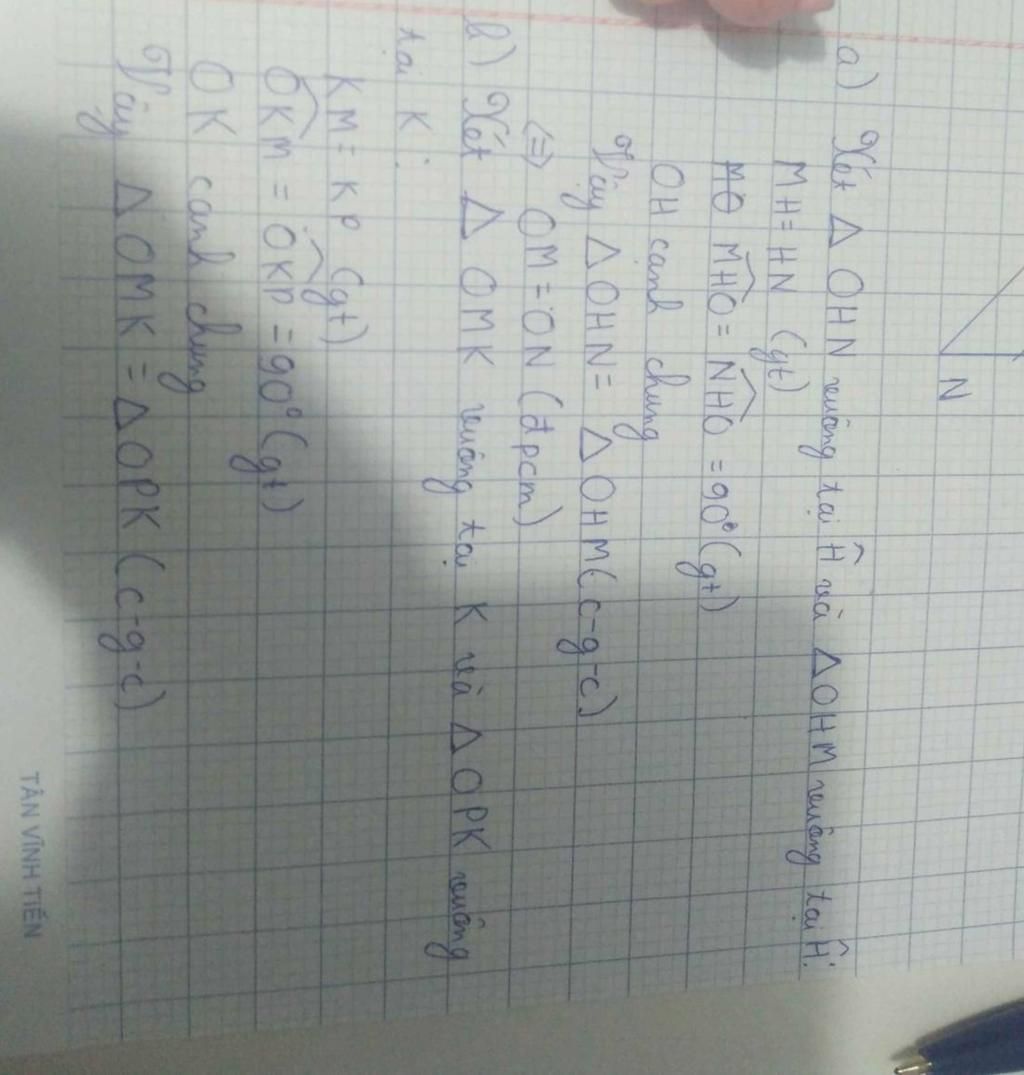 N
a) Xét △ OHN vuông tại Ĥ và △ OHM vuông tại Ĥ:
MH = HN (gt)
MO MHO = NHO = 90° (gt)
OH cạnh chung
Vậy △ OHN = △ OHM (c-g-c)
<=> OM = ON (đpcm)
b) Xét △ OMK vuông tại K và △ OPK vuông
tại K:
KM = KP (gt)
OKM = OKP = 90° (gt)
OK cạnh chung
Vậy △ OMK = △ OPK (c-g-c)
TÂN VĨNH TIẾN